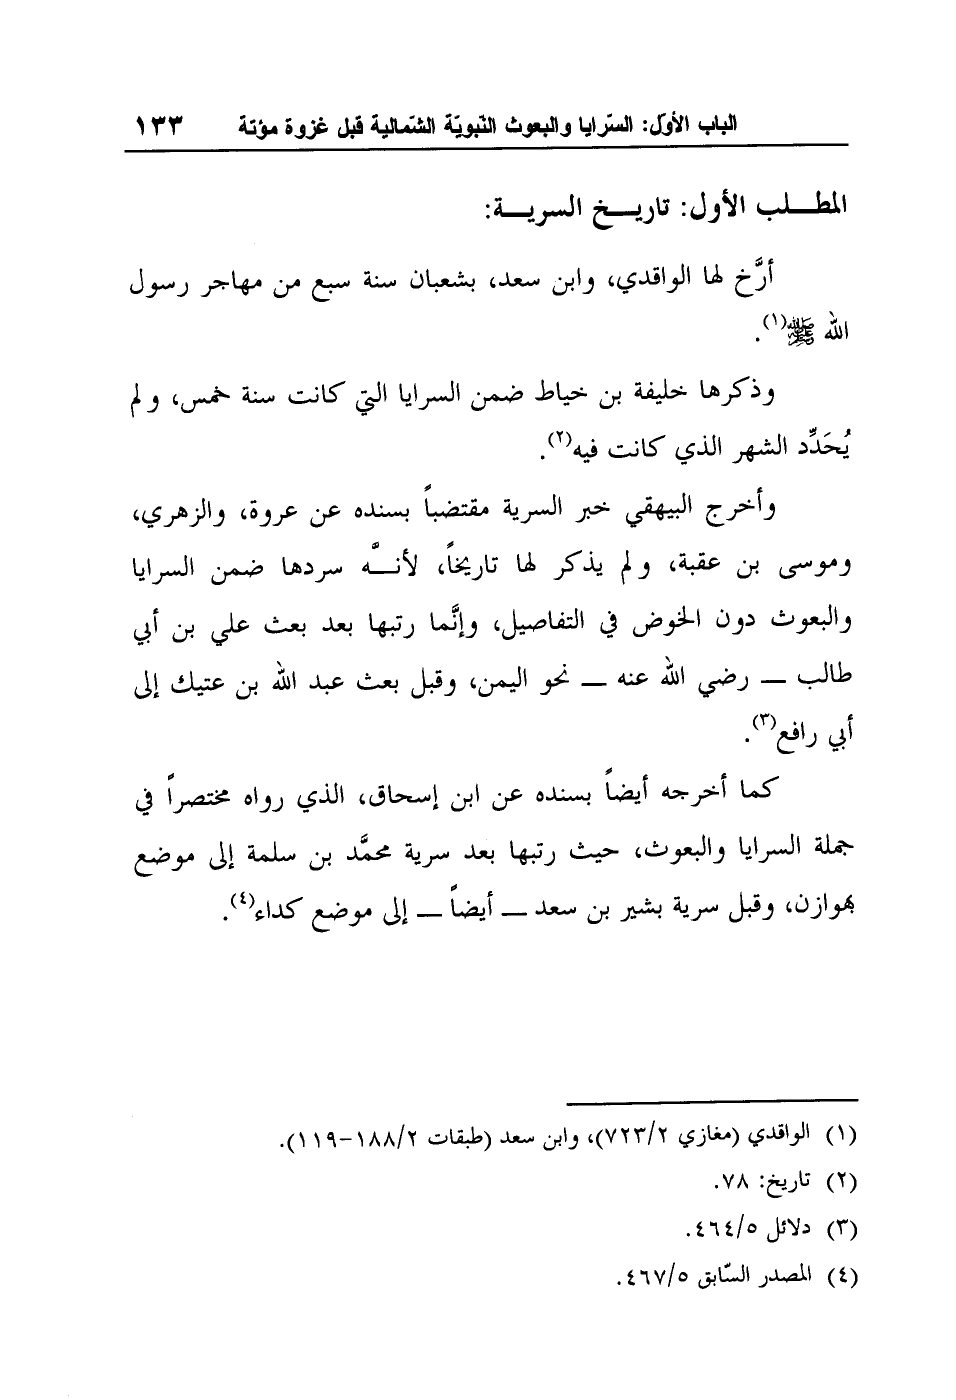 الباب الأوّل: السّرايا والبعوث النّبويّة الشّمالية قبل غزوة مؤتة ١٣٣
المطلب الأول: تاريخ السرية:
أرَّخ لها الواقدي، وابن سعد، بشعبان سنة سبع من مهاجر رسول
الله ﷺ(١).
وذكرها خليفة بن خياط ضمن السرايا التي كانت سنة خمس، ولم
يُحَدِّد الشهر الذي كانت فيه(٢).
وأخرج البيهقي خبر السرية مقتضباً بسنده عن عروة، والزهري،
وموسى بن عقبة، ولم يذكر لها تاريخاً، لأنــه سردها ضمن السرايا
والبعوث دون الخوض في التفاصيل، وإنَّما رتبها بعد بعث علي بن أبي
طالب ــ رضي الله عنه ــ نحو اليمن، وقبل بعث عبد الله بن عتيك إلى
أبي رافع(٣).
كما أخرجه أيضاً بسنده عن ابن إسحاق، الذي رواه مختصراً في
جملة السرايا والبعوث، حيث رتبها بعد سرية محمَّد بن سلمة إلى موضع
بهوازن، وقبل سرية بشير بن سعد ــ أيضاً ــ إلى موضع كداء(٤).
(١) الواقدي (مغازي ٧٢٣/٢)، وابن سعد (طبقات ١٨٨/٢–١١٩).
(٢) تاريخ: ٧٨.
(٣) دلائل ٤٦٤/٥.
(٤) المصدر السّابق ٤٦٧/٥.